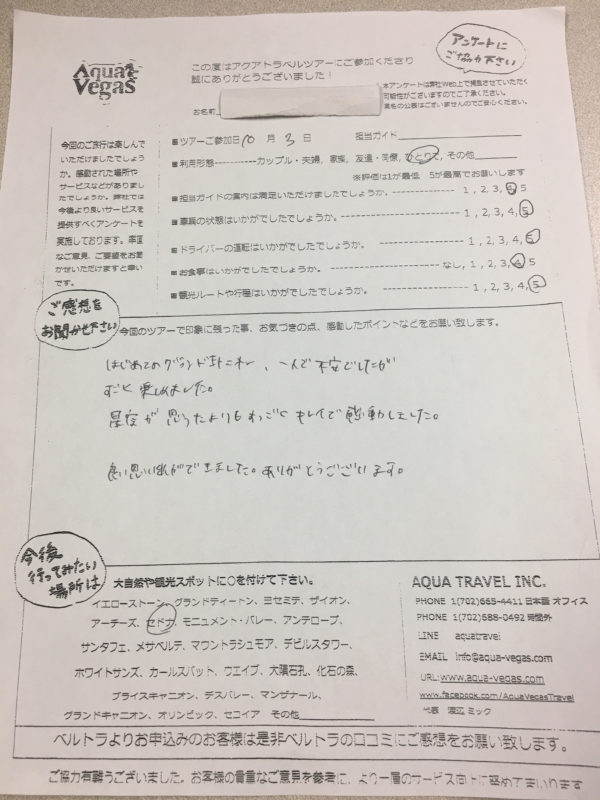 Aqua Vegas
この度はアクアトラベルツアーにご参加くださり
誠にありがとうございました！
アンケートに
ご協力下さい
本アンケートは弊社Web上で掲載させていただく
可能性がございますのでご了承ください。
実名の公表はございませんのでご安心ください。
お名前
今回のご旅行は楽しんで
いただけましたでしょう
か。感動された場所や
サービスなどがありまし
たでしょうか。弊社では
今後より良いサービスを
提供すべくアンケートを
実施しております。率直
なご意見、ご要望をお聞
かせいただけますと幸い
です。
■ツアーご参加日 10 月 3 日 担当ガイド
■利用形態------------カップル・夫婦, 家族, 友達・同僚, ひとりで, その他
※評価は1が最低 5が最高でお願いします
■担当ガイドの案内は満足いただけましたでしょうか。 1, 2, 3, 4, 5
■車輌の状態はいかがでしたでしょうか。 1, 2, 3, 4, 5
■ドライバーの運転はいかがでしたでしょうか。 1, 2, 3, 4, 5
■お食事はいかがでしたでしょうか。 なし, 1, 2, 3, 4, 5
■観光ルートや行程はいかがでしたでしょうか。 1, 2, 3, 4, 5
ご感想を
お聞かせ下さい
今回のツアーで印象に残った事、お気づきの点、感動したポイントなどをお願い致します。
はじめてのグランドキャニオン、一人で不安でしたが
すごく楽しめました。
星空が思ったよりもすっごくキレイで感動しました。
良い思い出ができました。ありがとうございます。
今後
行ってみたい
場所は
大自然や観光スポットに○を付けて下さい。
イエローストーン、グランドティートン、ヨセミテ、ザイオン、
アーチーズ、セドナ、モニュメント・バレー、アンテロープ、
サンタフェ、メサベルテ、マウントラシュモア、デビルスタワー、
ホワイトサンズ、カールスバット、ウエイブ、大隕石孔、化石の森、
ブライスキャニオン、デスバレー、マンザナール、
グランドキャニオン、オリンピック、セコイア その他
AQUA TRAVEL INC.
PHONE 1(702)665-4411 日本語 オフィス
PHONE 1(702)688-0492 時間外
LINE aquatravel
EMAIL info@aqua-vegas.com
URL:www.aqua-vegas.com
www.facebook.com/AquaVegasTravel
代表 渡辺 ミック
ベルトラよりお申込みのお客様は是非ベルトラの口コミにご感想をお願い致します。
ご協力有難うございました。お客様の貴重なご意見を参考に、より一層のサービス向上に努めてまいります